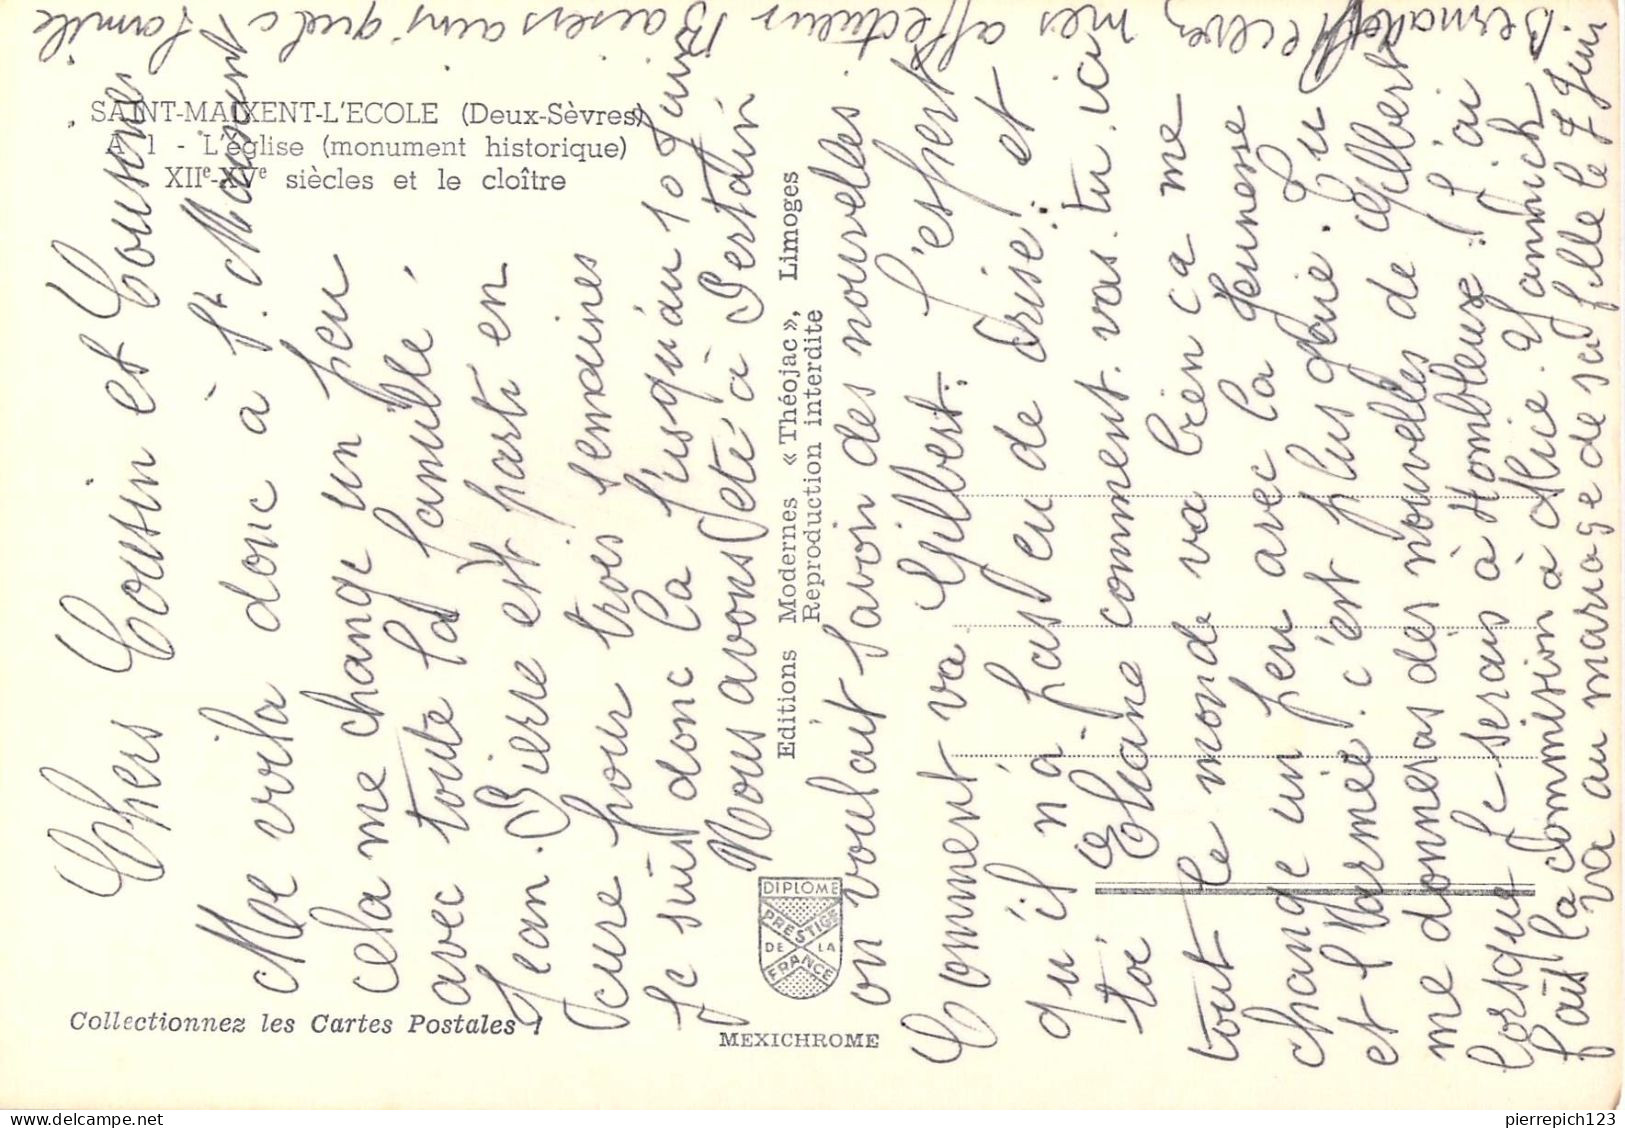 SAINT-MAIXENT-L'ECOLE (Deux-Sèvres)
A 1 - L'église (monument historique)
XIIe-XVe siècles et le cloître
Chers Cousin et Cousine
Me voila donc à St. Maixent
cela me change un peu
avec toute la famille.
Jean. Pierre est parti en
cure pour trois semaines
Je suis donc la jusqu'au 10 Juin
Nous avons été à Pertain
on voulait savoir des nouvelles
Comment va Gilbert. L'espert
qu'il n'a pas eu de crise: et
toi Ghislaine comment. vas. tu. ici
tout le monde va bien ca me
change un peu avec la Jeunesse
et l'Marmée. c'est plus gaie. Tu
me donneras des nouvelles de Gilbert
lorsque je serais à Hombleux. J'ai
fais la commision à Alice. et Jannick
va au mariage de sa fille le 7 Juin
Bernadette recevez mes affectueux Baisers ainsi que la famille
Editions Modernes « Théojac », Limoges
Reproduction interdite
DIPLOME
PRESTIGE
DE LA
FRANCE
MEXICHROME
Collectionnez les Cartes Postales !
pierrepich123